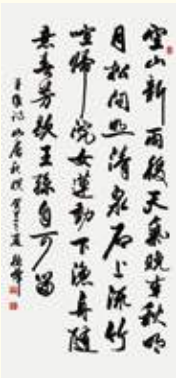 空山新雨後天氣晚来秋明
月松间照清泉石上流竹
喧歸浣女蓮動下漁舟随
意春芳歇王孫自可留
王維詩山居秋暝